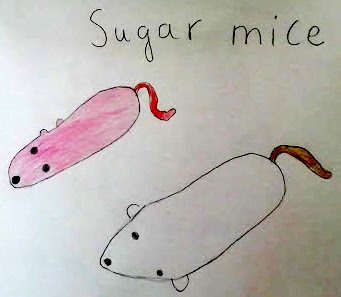 Sugar mice